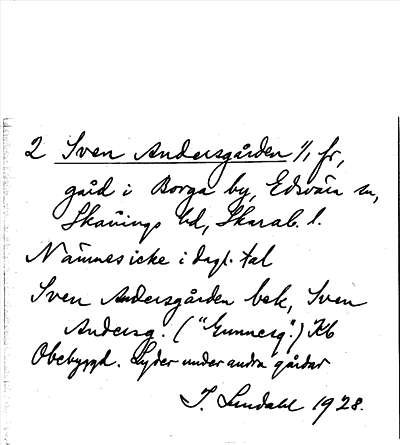 2 Sven Andersgården 1/1 fr,
gård i Borga by, Edsvära sn,
Skånings hd, Skarab. l.
Nämnes icke i dagl. tal
Sven Andersgården bek, Sven
Andersg. ("Gunnesg.") Kb
Obebyggd. Lyder under andra gårdar
J. Lindahl 1928.